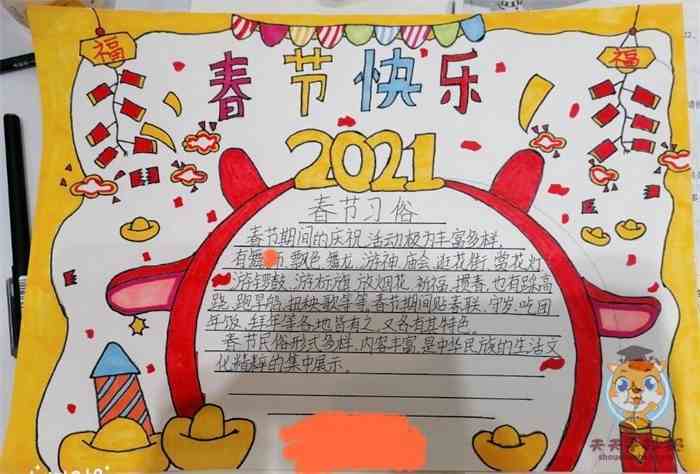 福
福
春节快乐
2021
春节习俗
春节期间的庆祝活动极为丰富多样,
有舞 飘色,舞龙,游神,庙会,逛花街,赏花灯
游锣鼓,游标旗,放烟花,祈福,掼春,也有踩高
跷,跑旱船,扭秧歌等等,春节期间贴春联、守岁、吃团
年饭、拜年等各地皆有之,又各有其特色。
春节民俗形式多样、内容丰富,是中华民族的生活文
化精粹的集中展示。